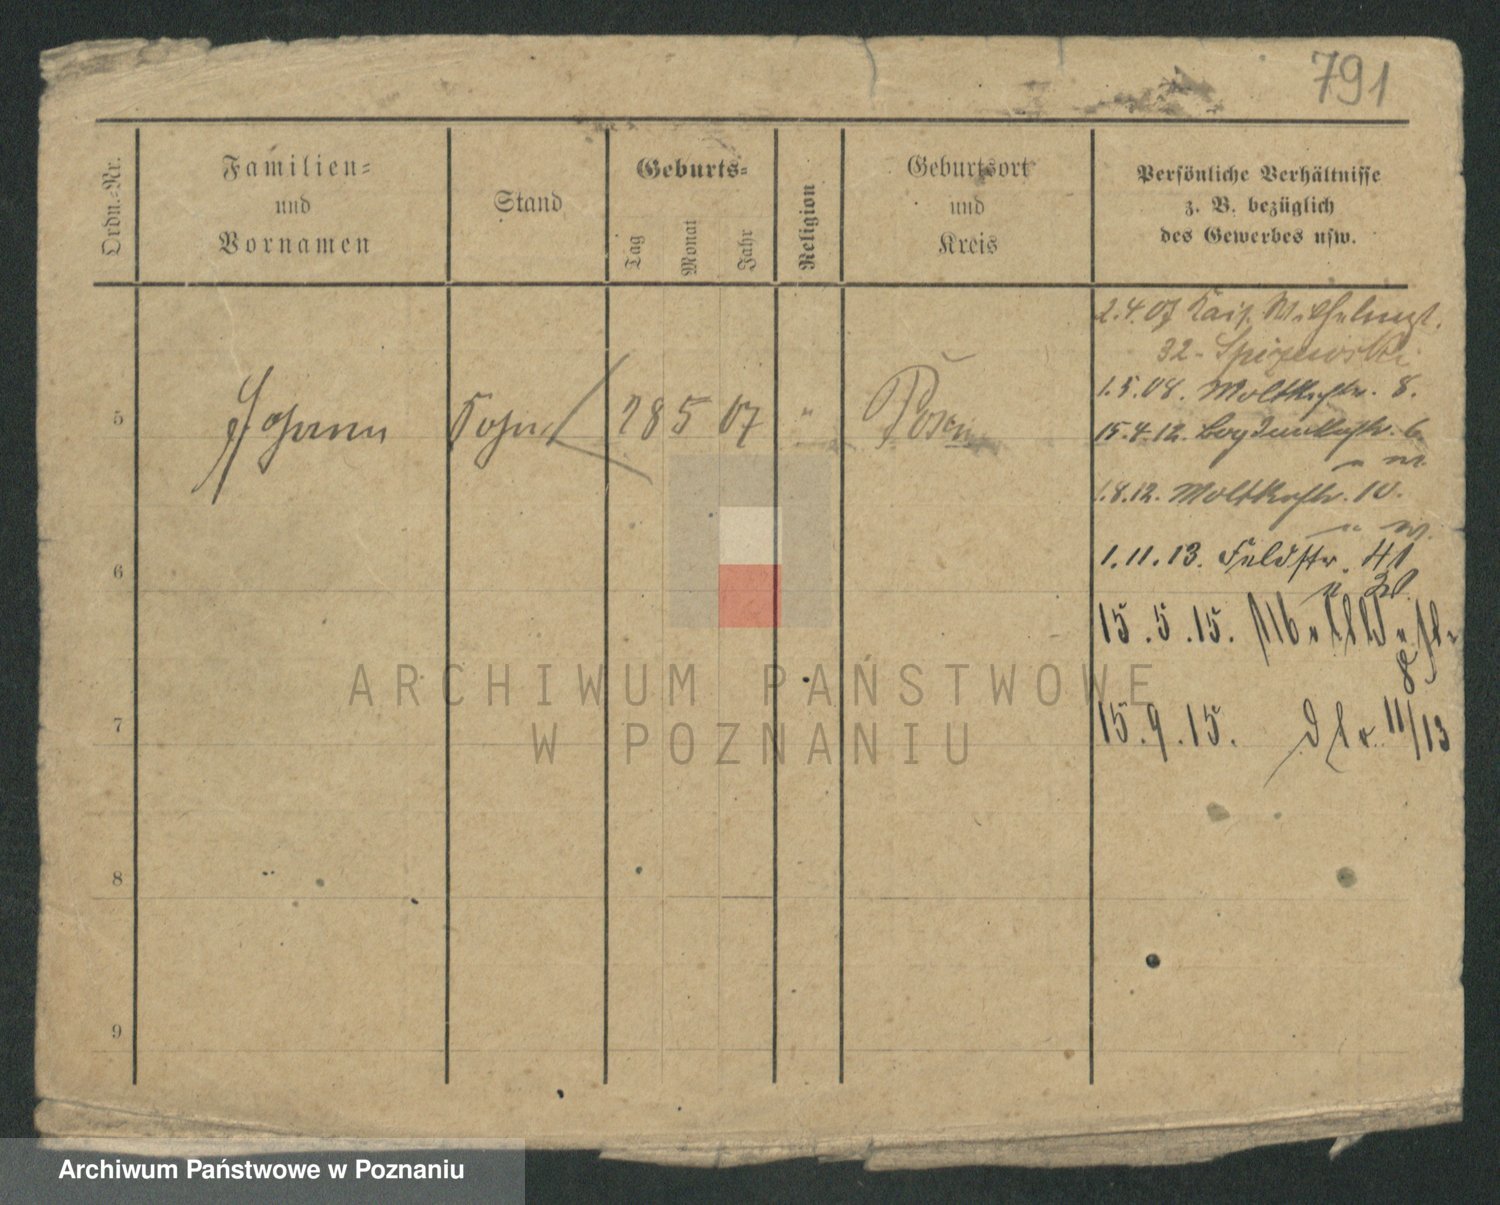 791
Ordn.-Nr.
Familien-
und
Vornamen
Stand
Geburts-
Tag
Monat
Jahr
Religion
Geburtsort
und
Kreis
Persönliche Verhältnisse
z. B. bezüglich
des Gewerbes usw.
2.4.07 Kais. Wilhelmst.
32
5
Johann
Sohn
28
5
07
"
Posen
1.5.08. Moltkestr. 8.
15.4.12.
1.8.12. Moltkestr. 10.
6
1.11.13. Feldstr. 41
15.5.15.
8
7
15.9.15.
11/13
8
9
ARCHIWUM PAŃSTWOWE
W POZNANIU
Archiwum Państwowe w Poznaniu